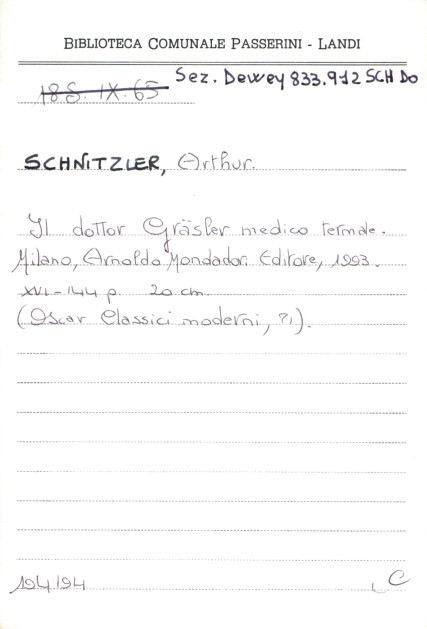 BIBLIOTECA COMUNALE PASSERINI - LANDI
18 S. IX. 65 Sez. Dewey 833.912 SCH Do
SCHNITZLER, Arthur.
Il dottor Gräsler medico termale.
Milano, Arnoldo Mondadori Editore, 1993.
XVI-144 p. 20 cm.
(Oscar Classici moderni, 71).
194194 C